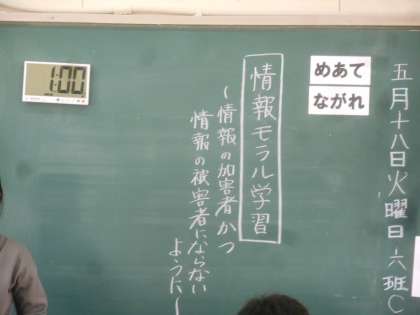 五月十八日火曜日六班C
めあて
ながれ
情報モラル学習
～情報の加害者かつ
情報の被害者にならない
ように～
1:00